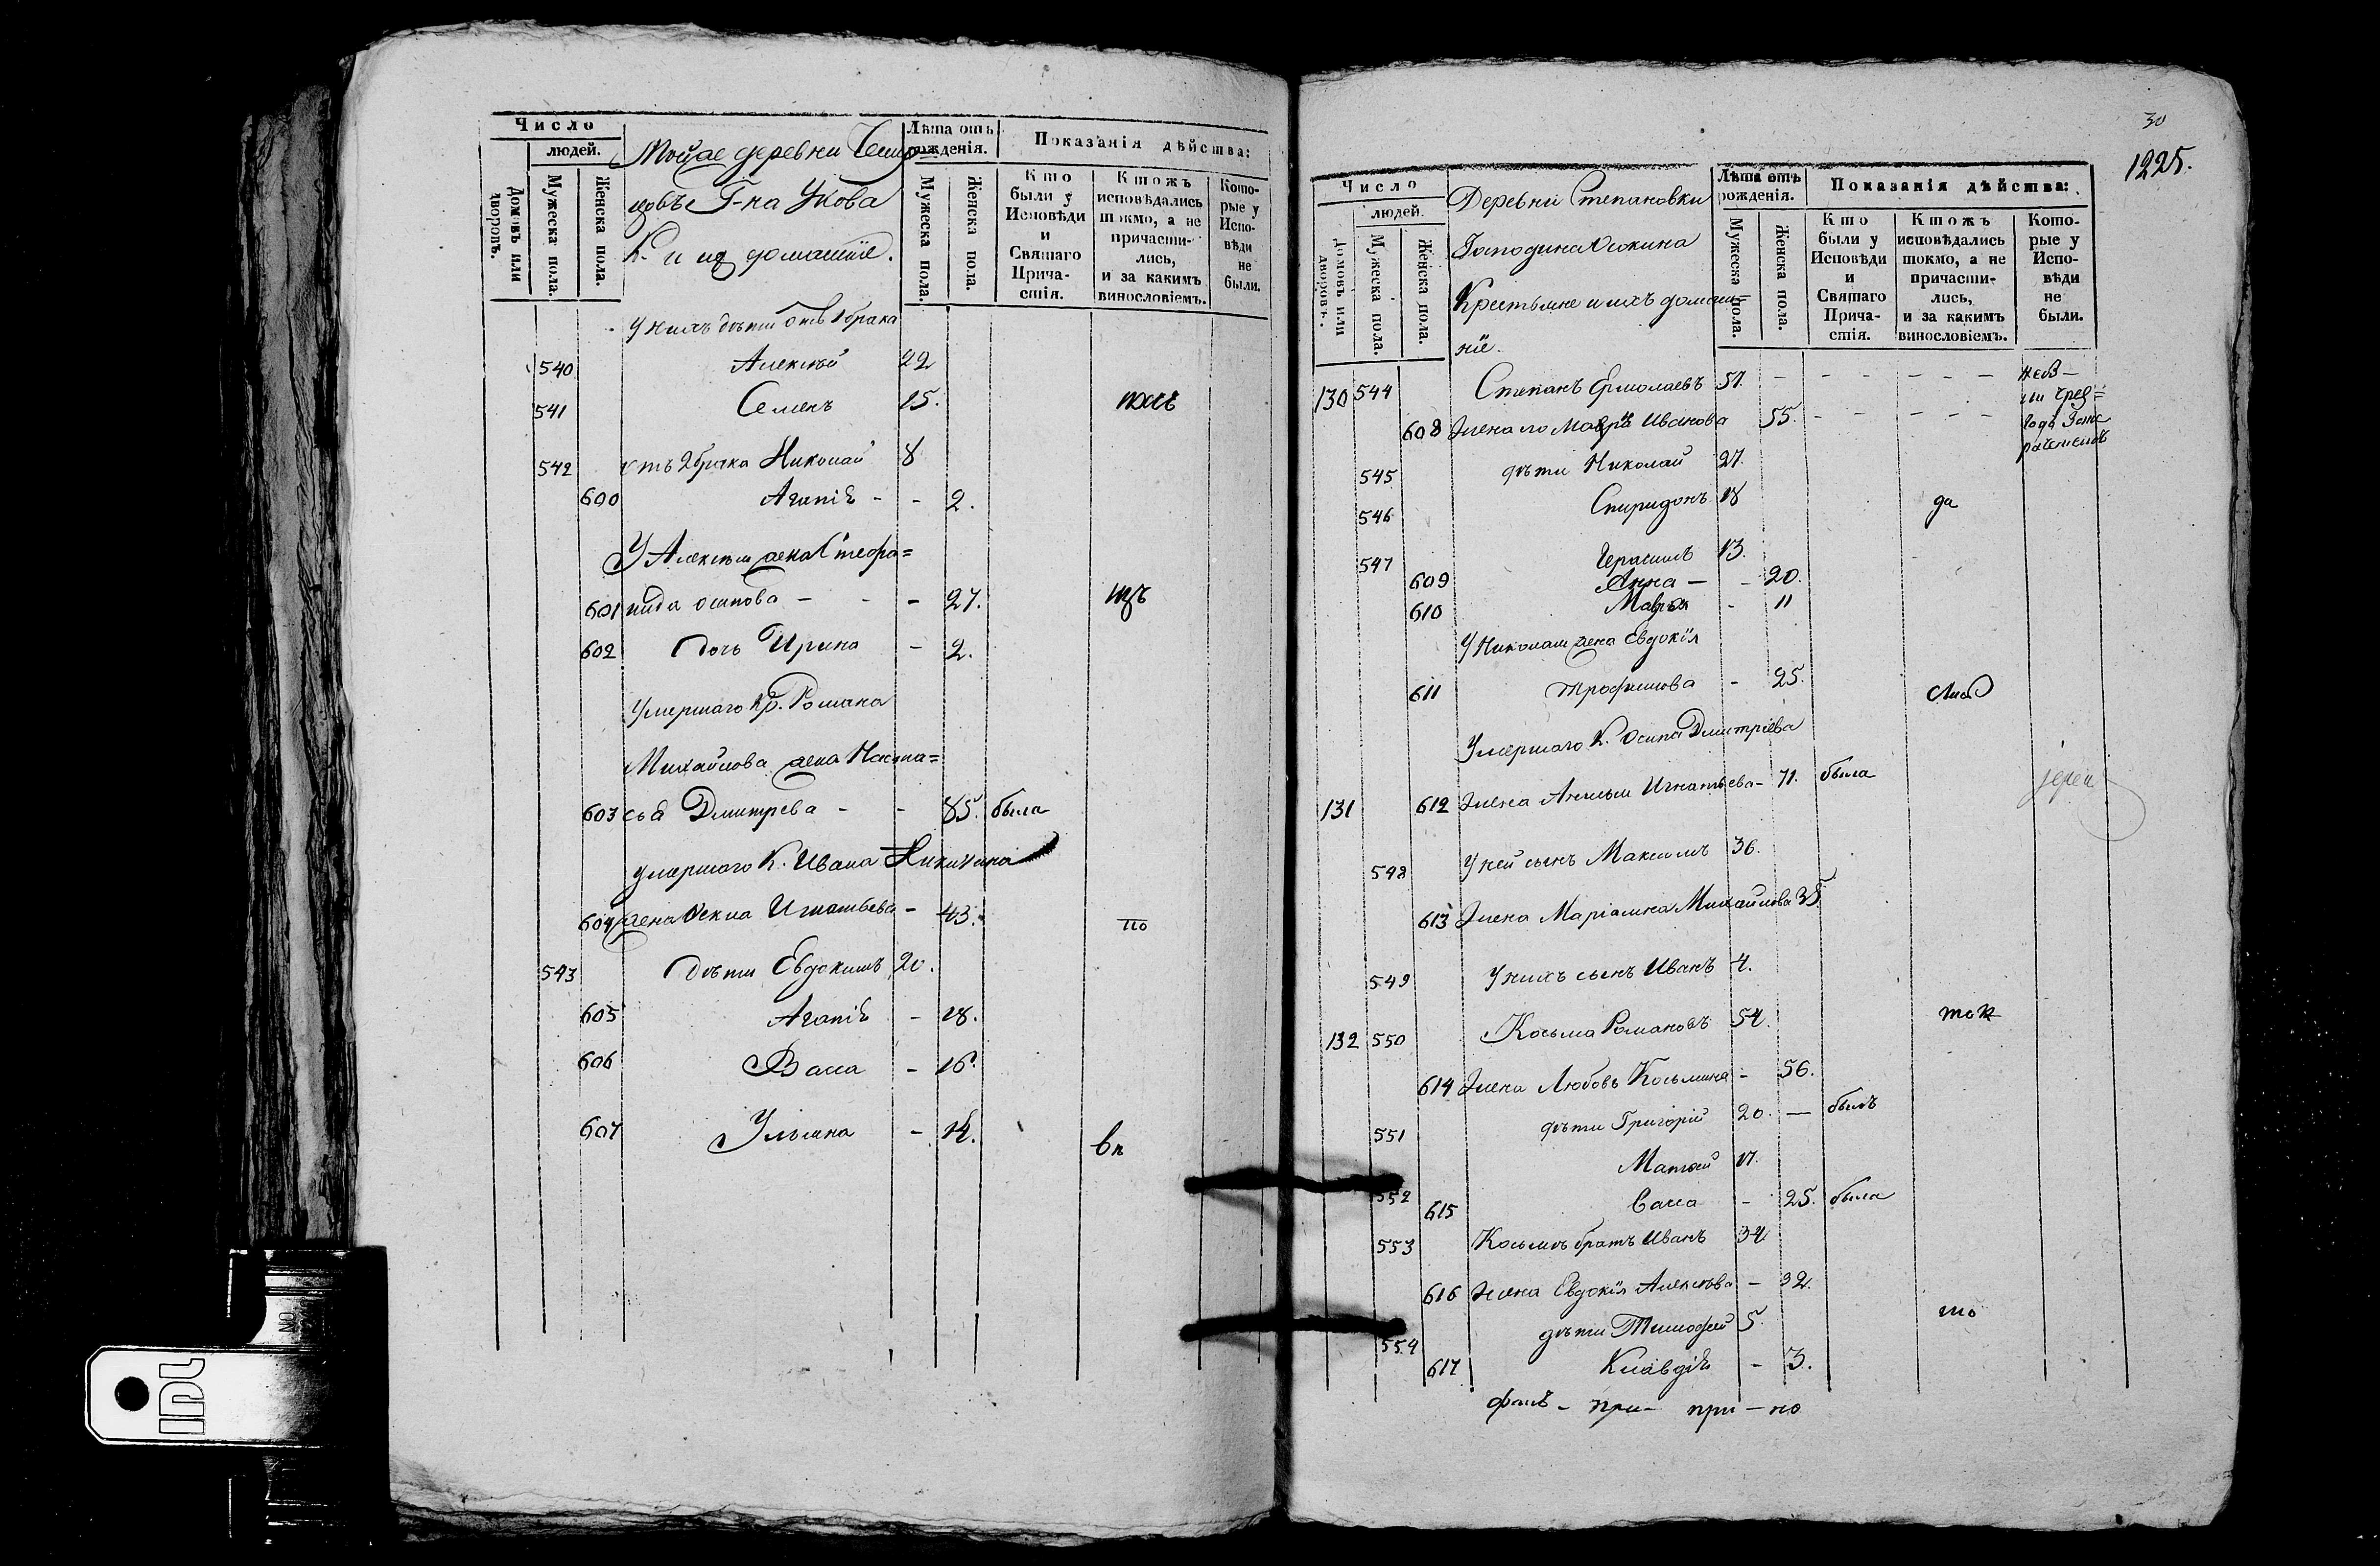 Число
людей.
Домовъ или дворовъ.
Мужеска пола.
Женска пола.
Тойже деревни
цовъ Г-на Укова
К. и их домашніе.
Лѣта отъ рожденія.
Мужеска пола.
Женска пола.
Показанія дѣйства:
Кто были у Исповѣди и Святаго Причастія.
Ктожъ исповѣдались токмо, а не причастились, и за какимъ винословіемъ.
Которые у Исповѣди не были.
У нихъ дѣти отъ 1 брака
540 Алексѣй 22
541 Семенъ 15.
542 отъ 2 брака Николай 8
600 Агапіѣ - - 2.
У Алексѣя жена Стефа=
601 нида Осипова - - - 27.
602 дочь Ирина - 2.
Умершаго Кр. Романа
Михайлова жена Наста=
603 сья Дмитрева - - 85. была
умершаго К. Ивана Никитина
604 жена Фекла Игнатьева - 43. по
543 дѣти Евдокимъ 20.
605 Агапіѣ - 18.
606 Васса - 16.
607 Ульяна - 14. вп
30
1225.
Число
людей.
Домовъ или дворовъ.
Мужеска пола.
Женска пола.
Деревни Степановки
Господина
Крестьяне и ихъ домаш=
ніе.
Лѣта отъ рожденія.
Мужеска пола.
Женска пола.
Показанія дѣйства:
Кто были у Исповѣди и Святаго Причастія.
Ктожъ исповѣдались токмо, а не причастились, и за какимъ винословіемъ.
Которые у Исповѣди не были.
130 544 Степанъ Ермолаевъ 57. - - - - - -
608 Жена его Мавра Иванова 55. - - - - -
545 дѣти Николай 27.
546 Спиридонъ 18 да
547 Герасимъ 13.
609 Анна - - 20.
610 Марья - 11
У Николая жена Евдокія
611 Трофимова - 25.
Умершаго К. Осипа Дмитріева
131 612 Жена Анисья Игнатьева - 71. была
548 У ней сынъ Максимъ 36.
613 Жена Маріамна Михайлова 35.
549 У нихъ сынъ Иванъ 4.
132 550 Косьма Романовъ 54. ток
614 Жена Любовь Косьмина - 56.
551 дѣти Григорій 20. - былъ
552 Матѳей 17.
615 Васса - 25. была
553 Косьмы братъ Иванъ 34
616 Жена Евдокія Алексѣева - 32.
554 дѣти Тимофей 5. мо
617 Клавдіѣ - 3.
при- при - но